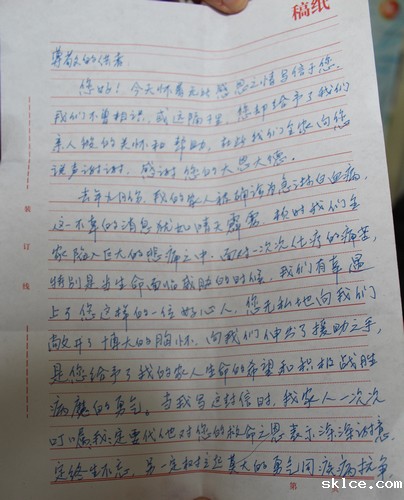 稿纸
尊敬的供者:
您好！今天怀着无比感恩之情写信于您,
我们不曾相识,或远隔千里,您却给予了我们
亲人般的关怀和帮助,在此我们全家向您
说声谢谢,感谢您的大恩大德。
去年九月份,我的家人被确诊为急淋白血病,
这一不幸的消息就如晴天霹雳 顿时我们全
家陷入巨大的悲痛之中.面对一次次化疗的痛苦,
特别是当生命面临威胁的时候,我们有幸遇
上了您这样的一位好心人,您无私地向我们
敞开了博大的胸怀,向我们伸出了援助之手,
是您给予了我的家人生命的希望和积极战胜
病魔的勇气。当我写这封信时,我家人一次次
叮嘱,我一定要代他对您的救命之恩表示深深谢意.
定终生不忘,另一定和他莫大的勇气同疾病抗争,
装
订
线
第
sklce.com